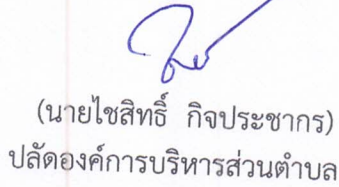 (นายไชสิทธิ์ กิจประชากร)
ปลัดองค์การบริหารส่วนตำบล